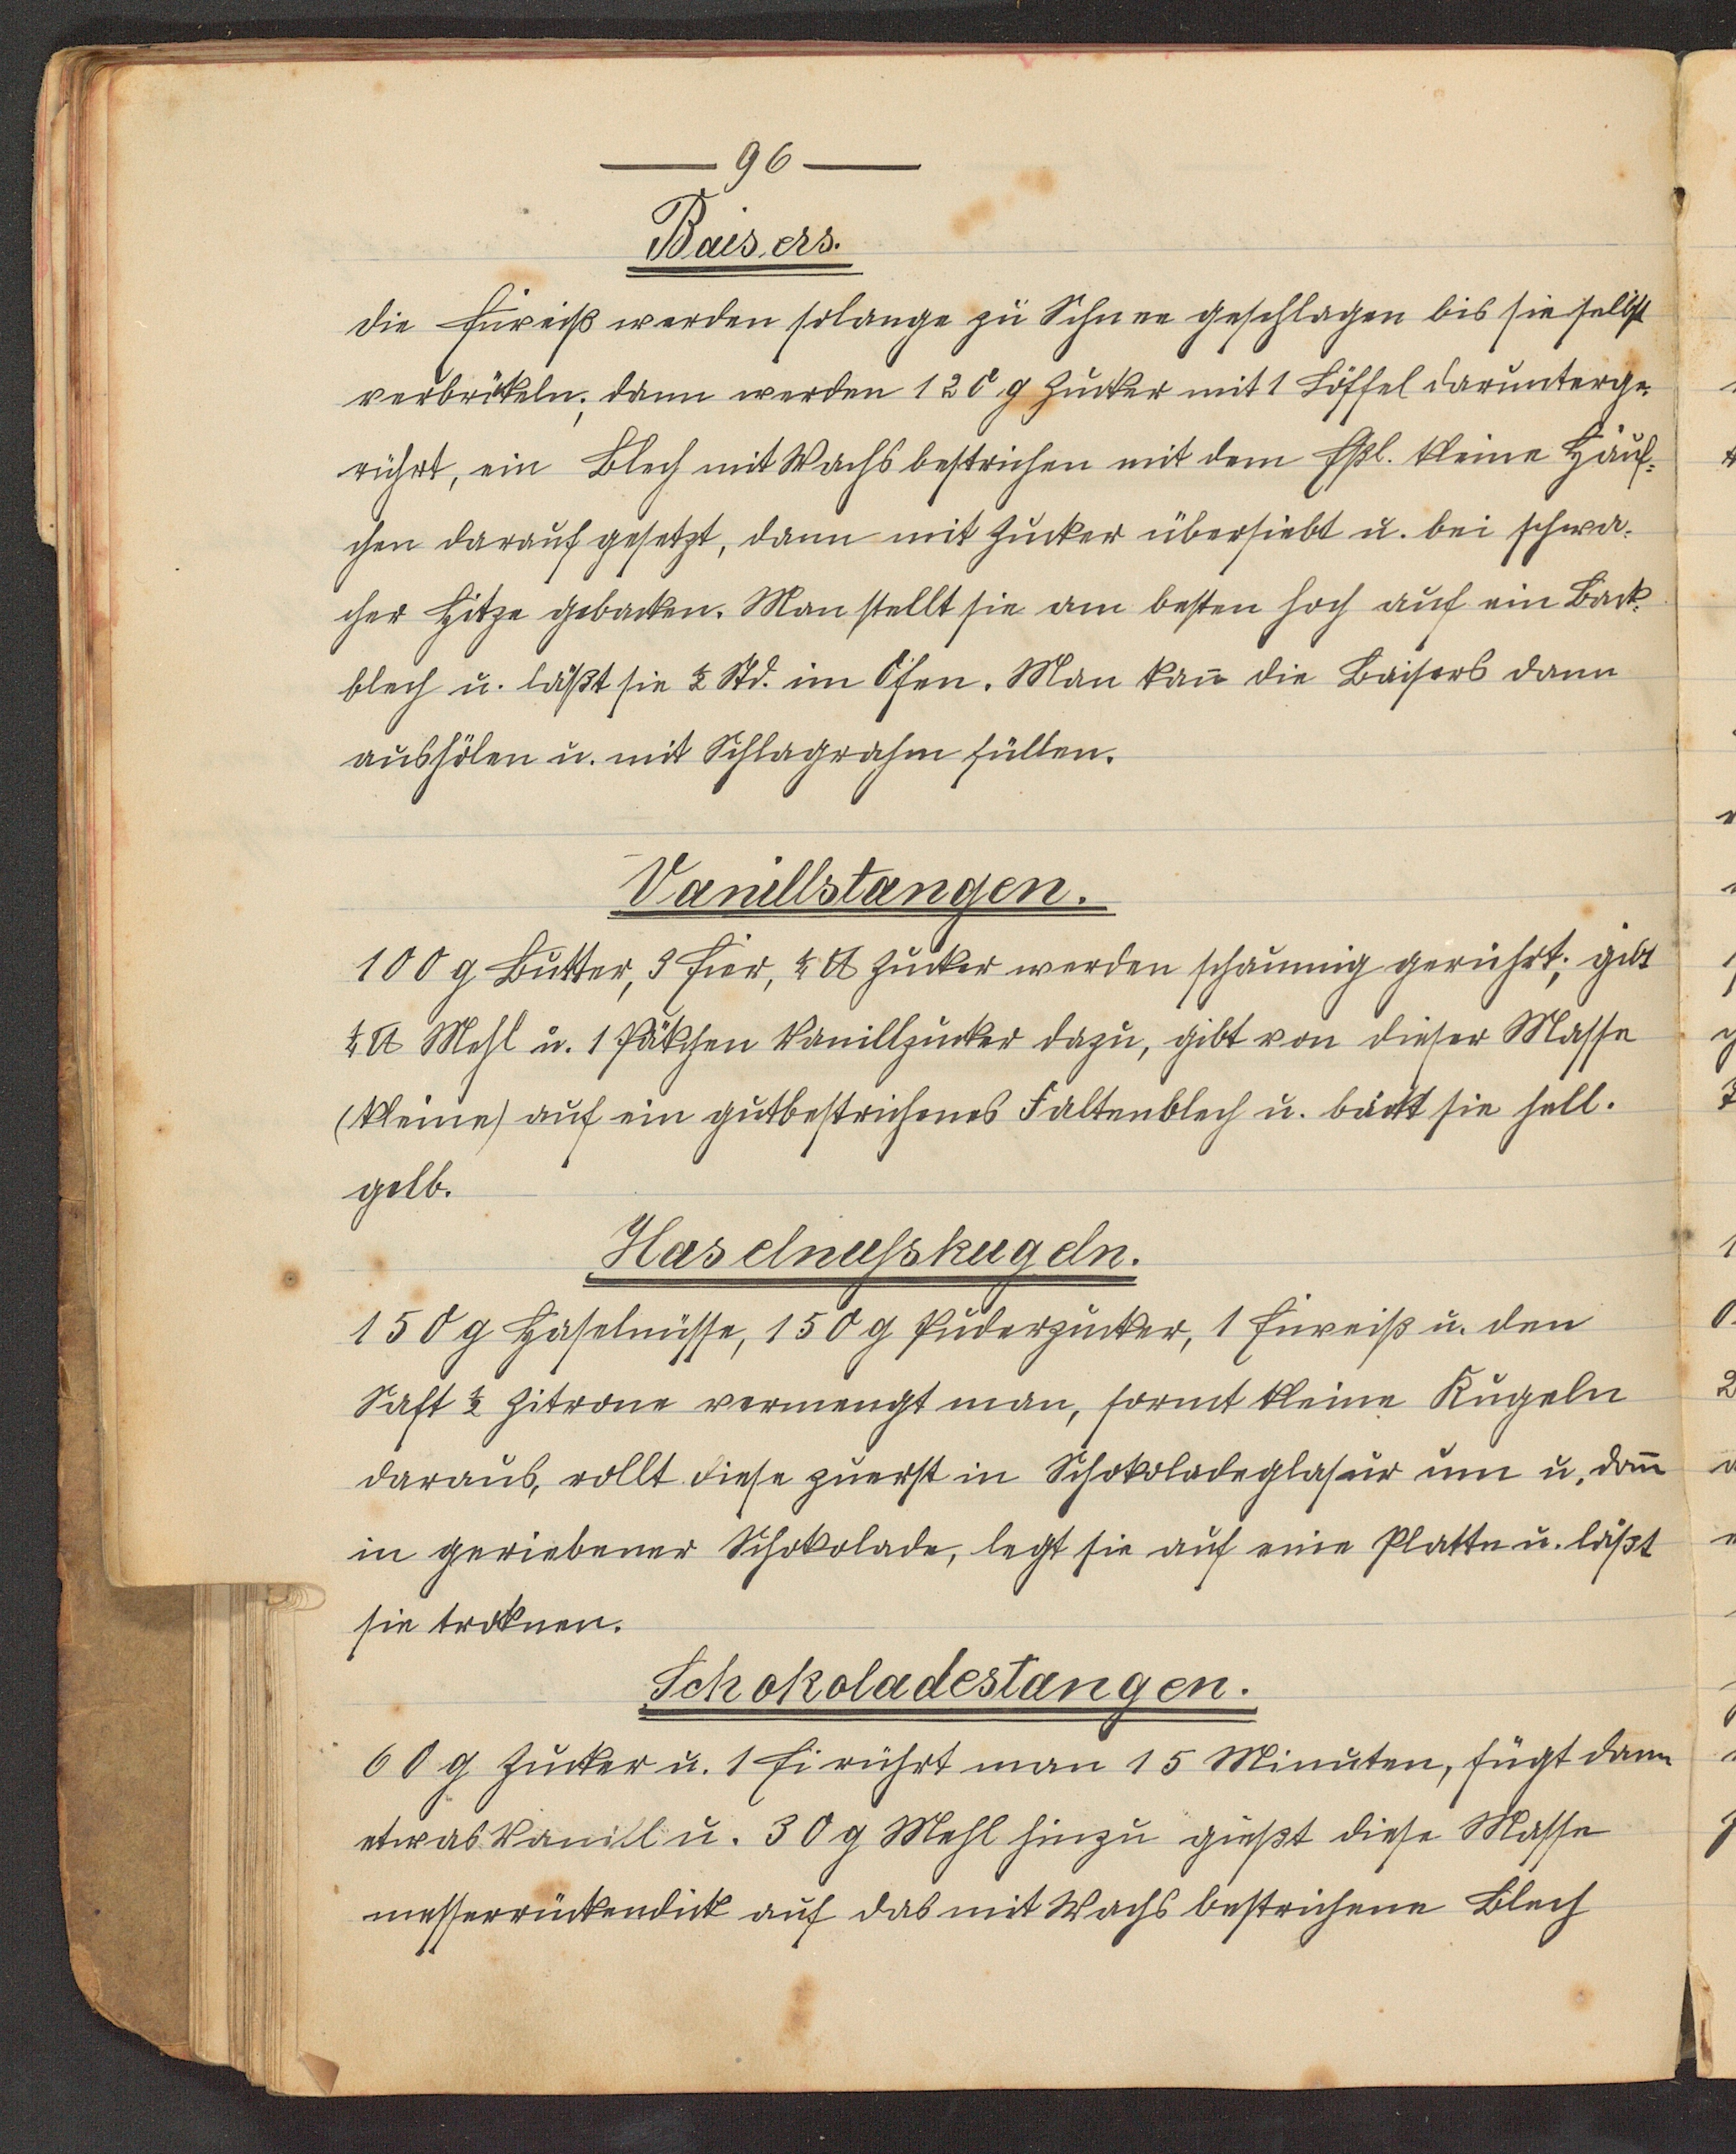 — 96 —
Baisers.
die Eiweiß werden solange zu Schnee geschlagen bis sie selbst
verbrökeln; dann werden 120 g Zucker mit 1 Löffel darunterge-
rührt, ein Blech mit Wachs bestrichen mit dem Eßl. kleine Häuf-
chen darauf gesetzt, dann mit Zucker übersiebt u. bei schwa-
cher Hitze gebacken. Man stellt sie am besten hoch auf ein Back-
blech u. läßt sie ½ Std. im Ofen. Man kan̄ die Baisers dann
aushölen u. mit Schlagrahm füllen.
Vanillstangen.
100 g Butter, 3 Eier, ¼ ℔ Zucker werden schaumig gerührt; gibt
¼ ℔ Mehl u. 1 Päkchen Vanillzucker dazu, gibt von dieser Masse
(kleine) auf ein gutbestrichenes Faltenblech u. bäckt sie hell-
gelb.
Haselnusskugeln.
150 g Haselnüsse, 150 g Puderzucker, 1 Eiweiß u. den
Saft ½ Zitrone vermengt man, formt kleine Kugeln
daraus, rollt diese zuerst in Schokoladeglasur um u. dan̄
in geriebener Schokolade, legt sie auf eine Platte u. läßt
sie troknen.
Schokoladestangen.
60 g Zucker u. 1 Ei rührt man 15 Minuten, fügt dann
etwas Vanill u. 30 g Mehl hinzu gießt diese Masse
messerrückendick auf das mit Wachs bestrichene Blech